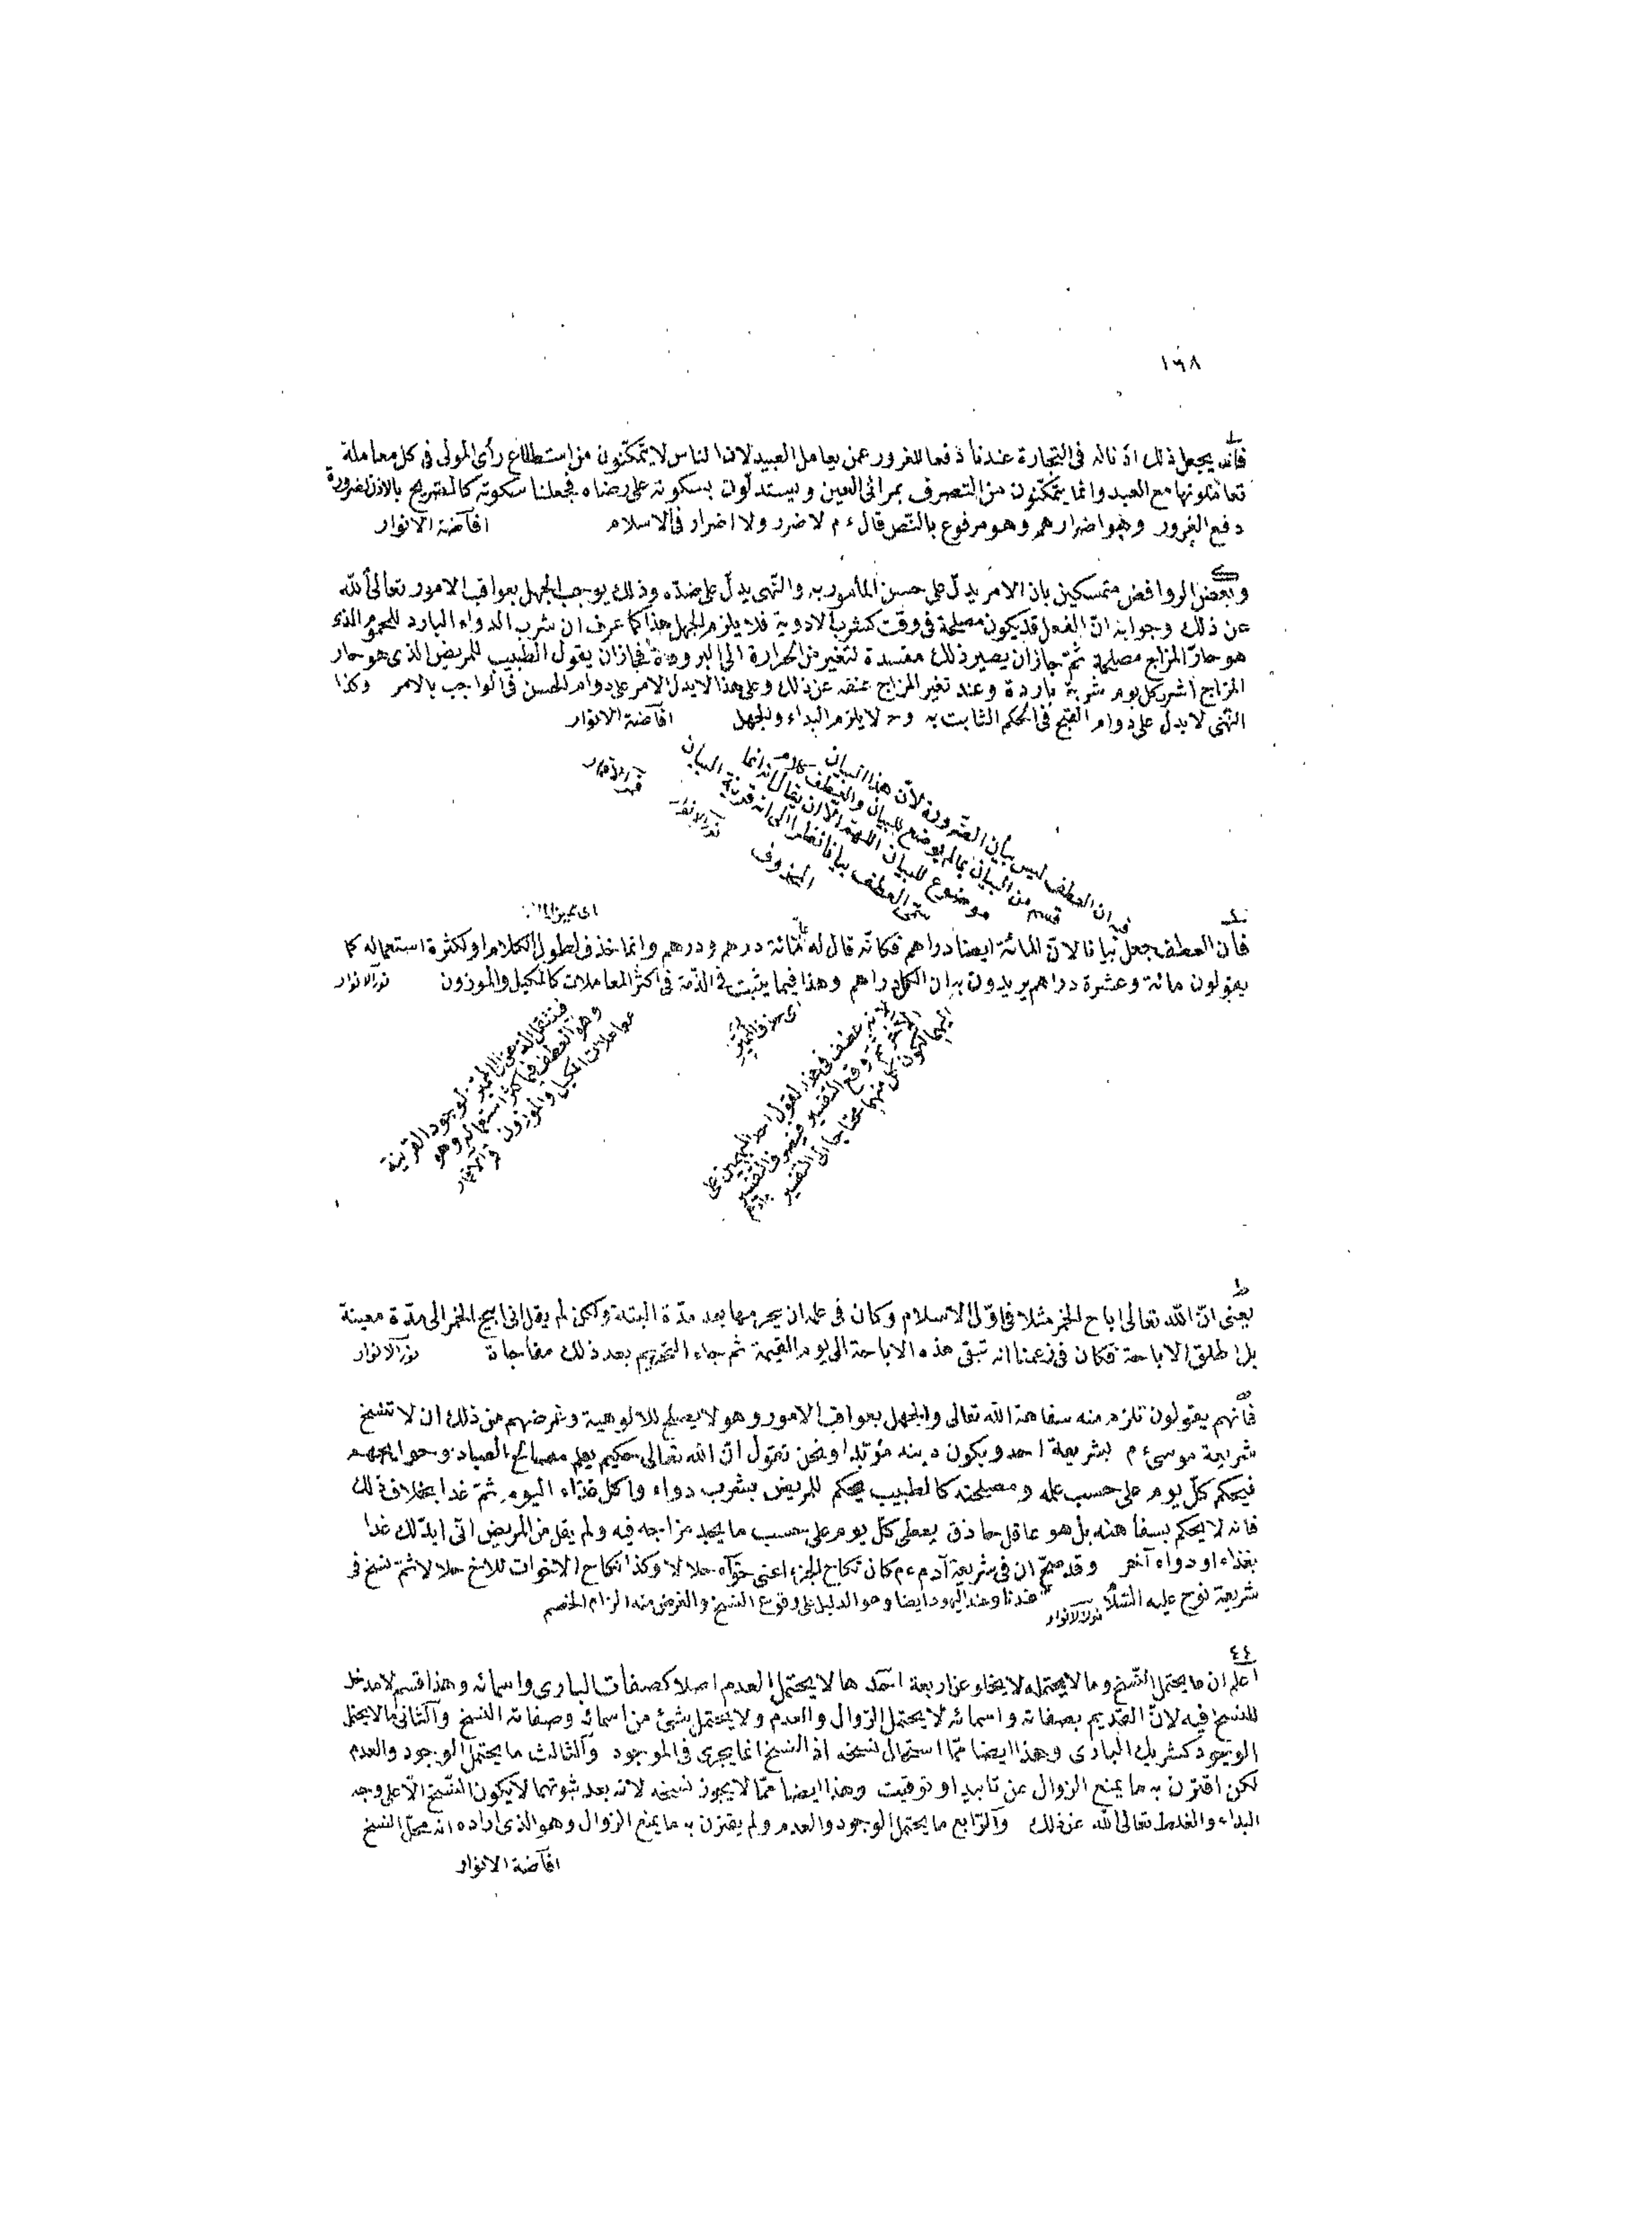 ١٦٨
فانه يجعل ذلك اذناله فى التجارة عندنا دفعا للغرور عمن يعامل العبيد لان الناس لا يتمكّنون من استطلاع رأى المولى فى كل معاملة
تعاملونها مع العبد وانما يتمكّنون من التصرف بمرائى العين ويستدلّون بسكوته على رضاه فجعلنا سكوته كالتصريح بالاذن لضرورة
دفع الغرور وهو اضرارهم وهو مرفوع بالنّص قال ء م لا ضرر ولا اضرار فى الاسلام افاضة الانوار
وبعض الروافض متمسكين بان الامر يدلّ على حسن المأمور به والنّهى يدلّ على ضدّه وذلك يوجب الجهل بعواقب الامور تعالى الله
عن ذلك وجوابه انّ الفعل قد يكون مصلحة فى وقت كشرب الادوية فلا يلزم الجهل هذا كما عرف ان شرب الدواء البارد للمحموم الذى
هو حارّ المزاج مصلحة ثمّ جاز ان يصير ذلك مفسدة لتغير من الحرارة الى البرودة فجاز ان يقول الطبيب للمريض الذى هو حار
المزاج اشرب كل يوم شربة باردة وعند تغير المزاج عنفه عن ذلك وعلى هذا لا يدل الامر على دوام الحسن فى الواجب بالامر وكذا
النّهى لا يدل على دوام القبح فى الحكم الثابت به وح لا يلزم البداء والجهل افاضة الانوار
ان العطف ليس بيان الضّرورة لانّ هذا البيان
قسم من البيان بما لم يوضع للبيان والعطف
موضوع للبيان اللهمّ الا ان يقال انه انما
سمّى العطف بيانا نظرا الى انه قرينة البيان
المحذوف
نور الانوار
قمر الاقمار
فانّ العطف جعل بيانا لانّ المائة ايضا دراهم فكانّه قال له علىّ مائة درهم ودرهم وانما حذف لطول الكلام او لكثرة استعماله كما
يقولون مائة وعشرة دراهم يريدون به ان الكل دراهم وهذا فيما يثبت فى الذّمّة فى اكثر المعاملات كالمكيل والموزون نور الانوار
لانه عطف فى هذه القول احد المبهمين على
الآخر ثم وقع التفسير فيصرف التفسير
اليهما لكون كل منهما محتاجا الى التفسير
وهو العطف فيما كثر استعماله وهو
معاملات المكيل والموزون قمر الاقمار
يعنى انّ الله تعالى اباح الخمر مثلا فى اوّل الاسلام وكان فى علمه ان يحرمها بعد مدّة البتة ولكن لم يقل انى ابيح الخمر الى مدّة معينة
بل اطلق الاباحة فكان فى زعمنا انه تبقى هذه الاباحة الى يوم القيمة ثم جاء التحريم بعد ذلك مفاجاة نور الانوار
فانّهم يقولون تلزم منه سفاهة الله تعالى والجهل بعواقب الامور وهو لا يصلح للالوهية وغرضهم من ذلك ان لا تنسخ
شريعة موسى ء م بشريعة احد ويكون دينه مؤبّدا ونحن نقول انّ الله تعالى حكيم يعلم مصالح العباد وحوايجهم
فيحكم كلّ يوم على حسب علمه ومصلحته كالطبيب يحكم للمريض بشرب دواء واكل غذاء اليوم ثمّ غدا بخلاف ذلك
فانه لا يحكم بسفاهته بل هو عاقل حاذق يعطى كلّ يوم على حسب ما يجد مزاجه فيه ولم يقل من المريض انّى ابدّلك غدا
بغذاء او دواء آخر وقد صحّ ان فى شريعة آدم ء م كان نكاح الجزء اعنى حوّاء حلالا وكذا نكاح الاخوات للاخ حلالا ثمّ نسخ فى
شريعة نوح عليه السّلام نور الانوار عندنا وعند اليهود ايضا وهو الدليل على وقوع النسخ والغرض منه الزام الخصم
٤٤
اعلم ان ما يحتمل النّسخ وما لا يحتمله لا يخلو عن اربعة احدها لا يحتمل العدم اصلا كصفات البارى واسمائه وهذا قسم لا مدخل
للنسخ فيه لانّ القديم بصفاته واسمائه لا يحتمل الزوال والعدم ولا يحتمل شئ من اسمائه وصفاته النسخ والثانى ما لا يحتمل
الوجود كشريك البارى وهذا ايضا ممّا استحال نسخه اذ النسخ انما يجرى فى الموجود والثالث ما يحتمل الوجود والعدم
لكن اقترن به ما يمنع الزوال عن تابيد او توقيت وهذا ايضا ممّا لا يجوز نسخه لانه بعد ثبوتهما لا يكون النّسخ الّا على وجه
البداء والغلط تعالى الله عن ذلك والرّابع ما يحتمل الوجود والعدم ولم يقترن به ما يمنع الزوال وهو الذى اراده انه محلّ النسخ
افاضة الانوار